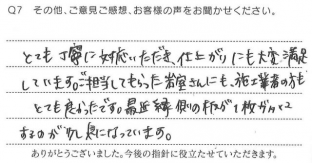 Q7 その他、ご意見ご感想、お客様の声をお聞かせください。
とても丁寧に対応いただき、仕上がりにも大変満足
しています。ご担当してもらった岩室さんにも、施工業者の方も
とても良かったです。最近縁側の板が1枚
するのが少し気になっています。
ありがとうございました。今後の指針に役立たせていただきます。